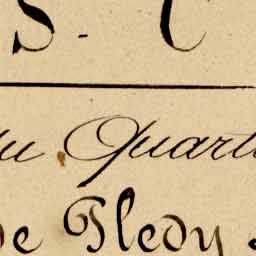 S. C
du Quarti
de Pledy